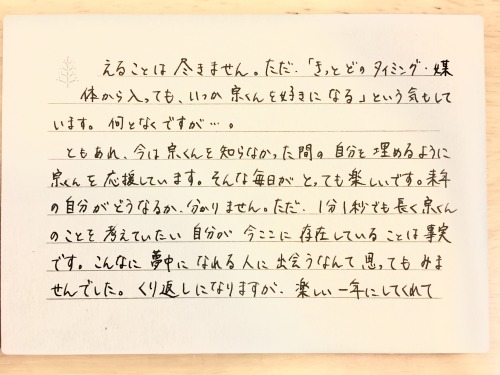 えることは尽きません。ただ、「きっとどのタイミング・媒
体から入っても、いつか宗くんを好きになる」という気もして
います。何となくですが…。
ともあれ、今は宗くんを知らなかった間の自分を埋めるように
宗くんを応援しています。そんな毎日がとっても楽しいです。来年
の自分がどうなるか、分かりません。ただ、1分1秒でも長く宗くん
のことを考えていたい自分が今ここに存在していることは事実
です。こんなに夢中になれる人に出会うなんて思ってもみま
せんでした。くり返しになりますが、楽しい一年にしてくれて